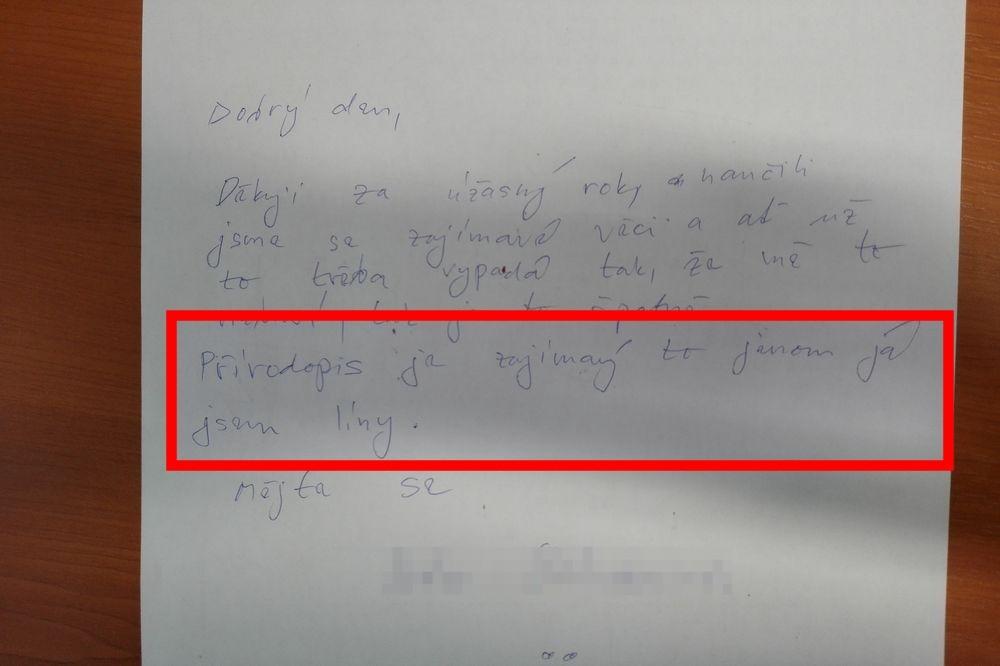 Dobrý den,
Děkuji za úžasný rok, naučili
jsme se zajímavé věci a ať už
to třeba vypadá tak, že mě to
to špatně
Přírodopis je zajímavý to jenom já
jsem líny.
Mějte se